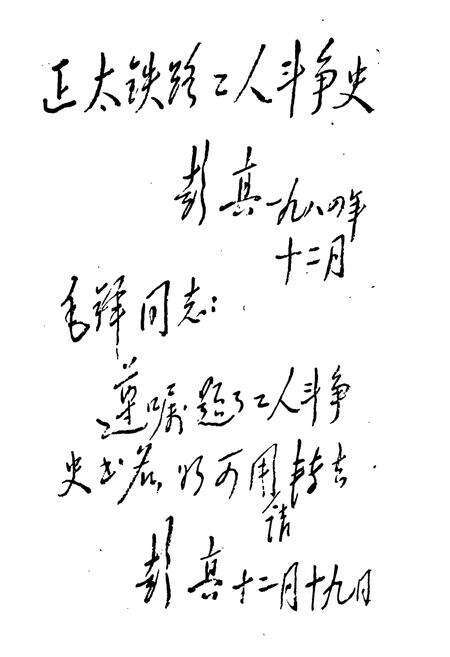 正太铁路工人斗争史
彭真 一九八四年
十二月
毛铎同志:
遵嘱题了工人斗争
史书名,如可用请转去
彭真 十二月十九日